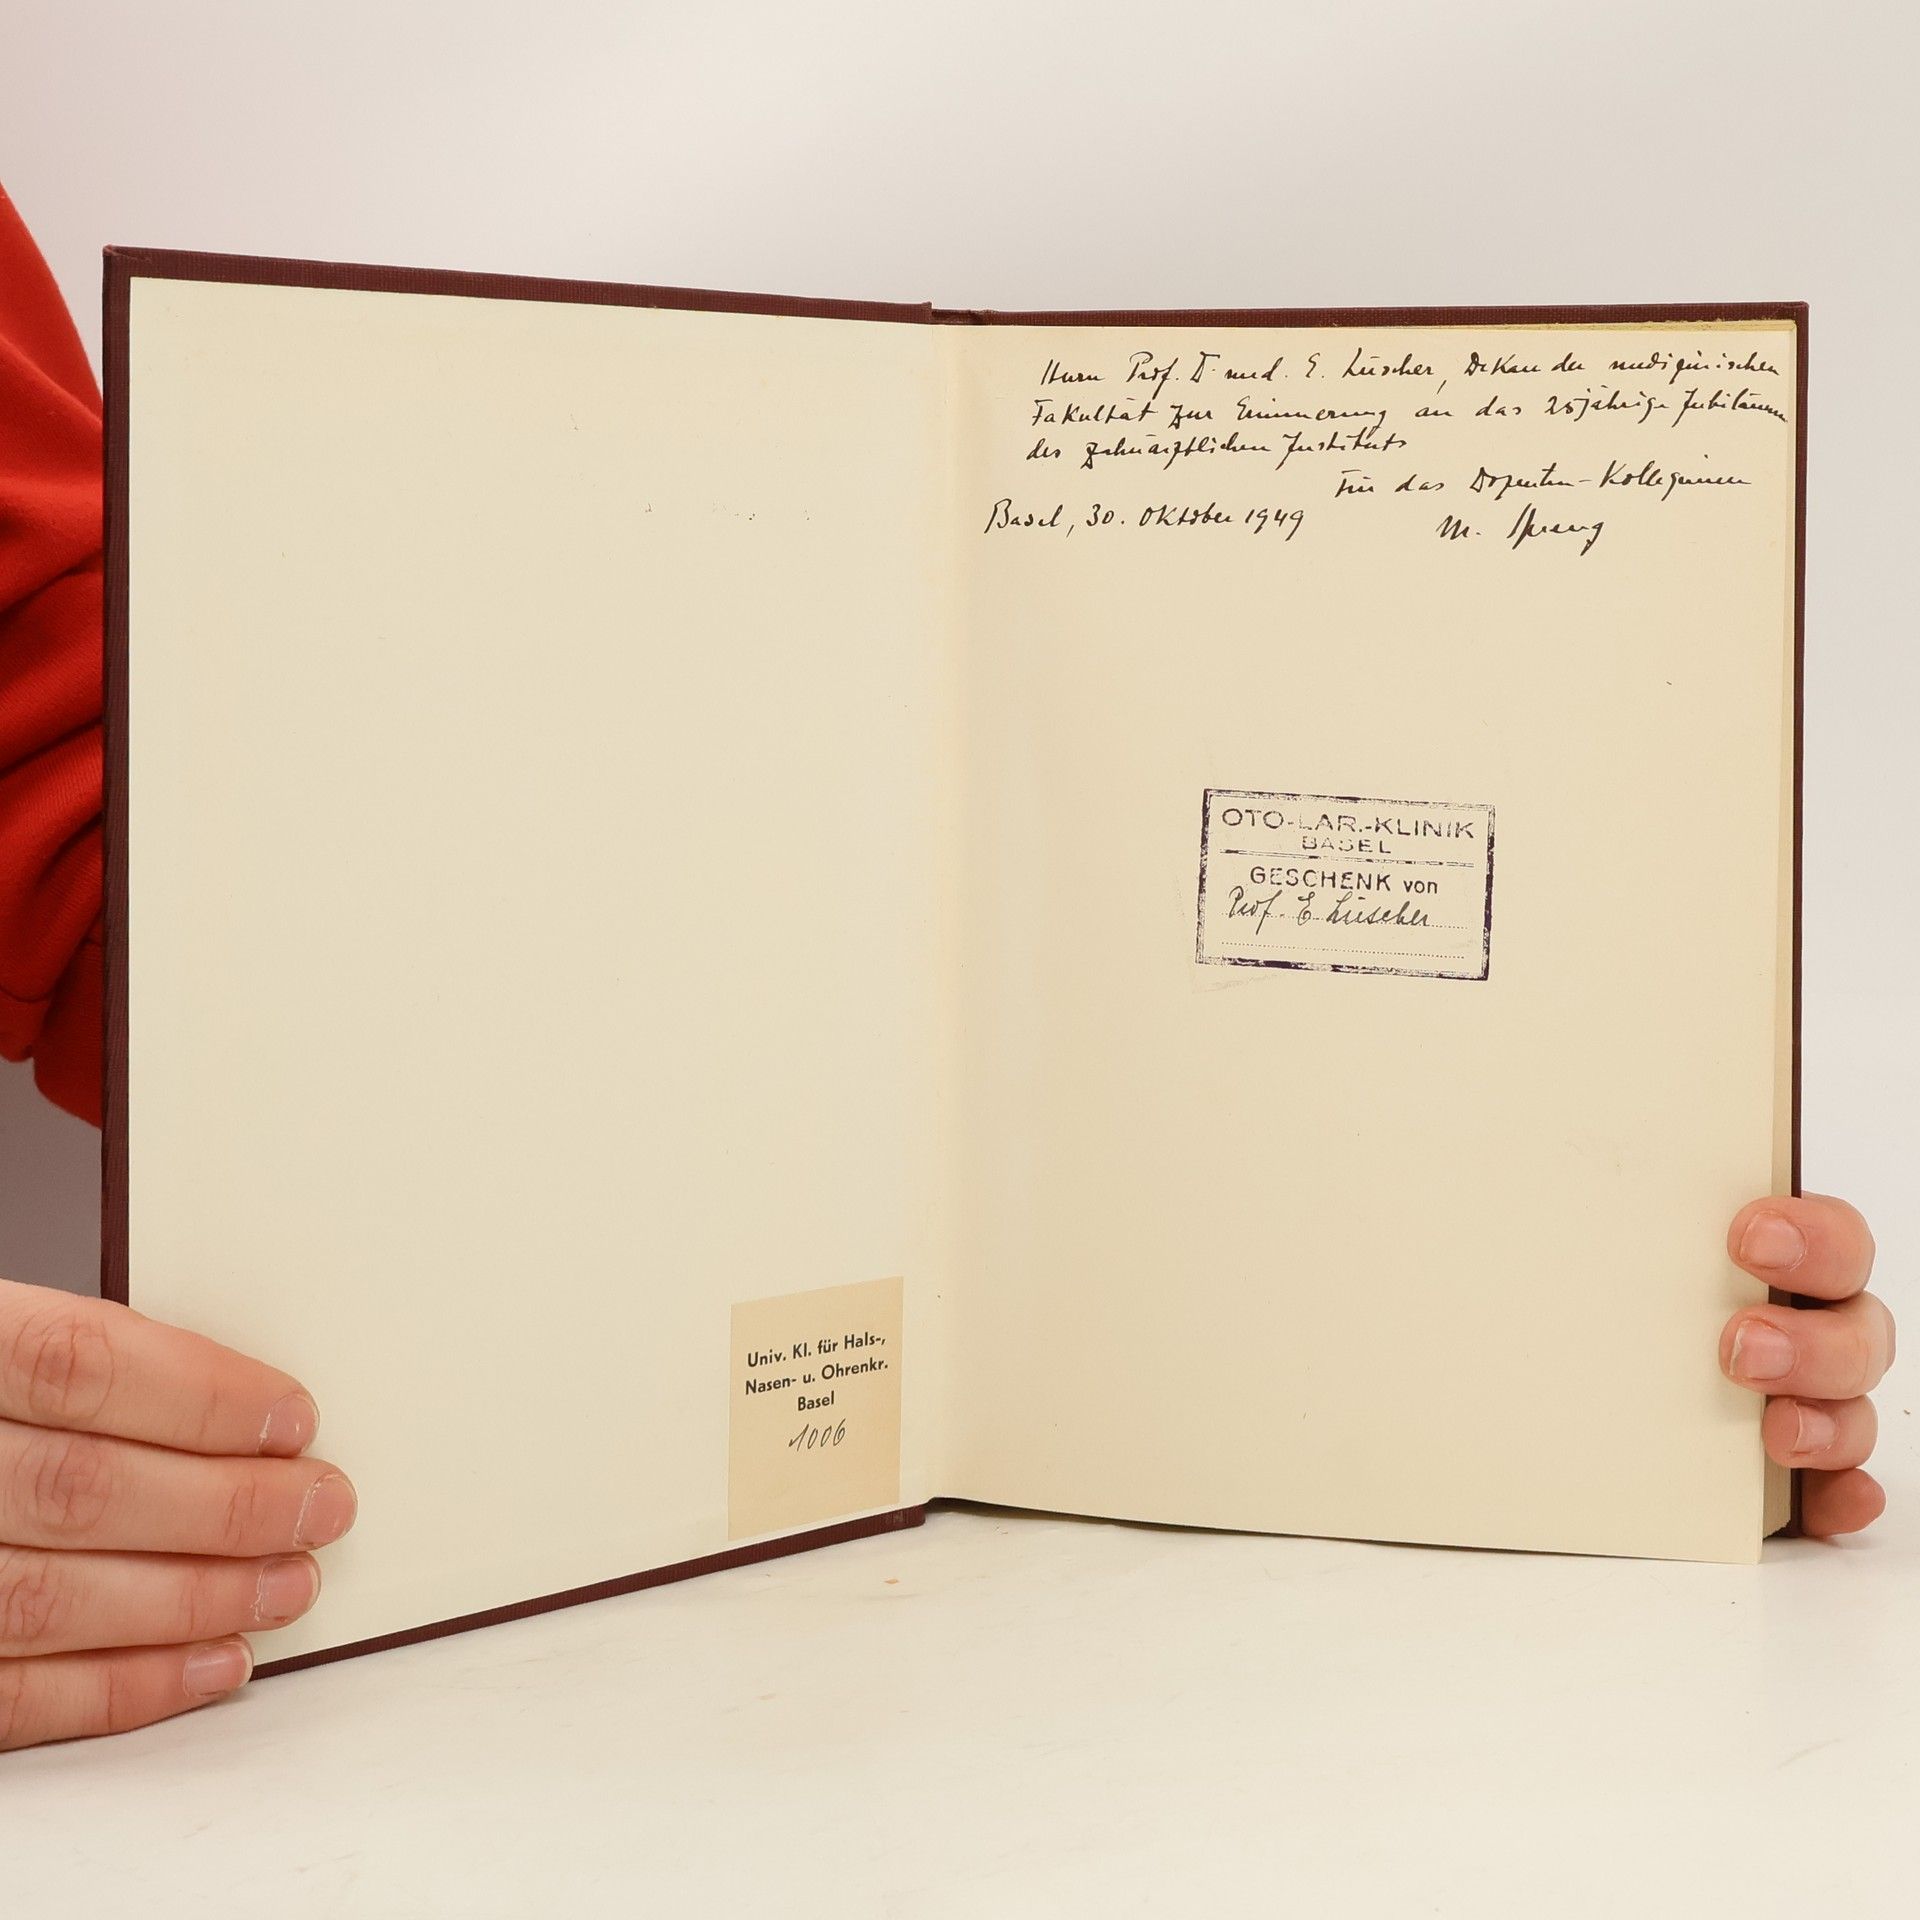 Univ. Kl. für Hals-,
Nasen- u. Ohrenkr.
Basel
1006
Herrn Prof. Dr. med. E. Lüscher, Dekan der medizinischen
Fakultät zur Erinnerung an das 25jährige Jubiläum
des zahnärztlichen Instituts
Für das Dozenten-Kollegium
Basel, 30. Oktober 1949 M. Spreng
OTO-LAR.-KLINIK
BASEL
GESCHENK von
Prof. E Lüscher